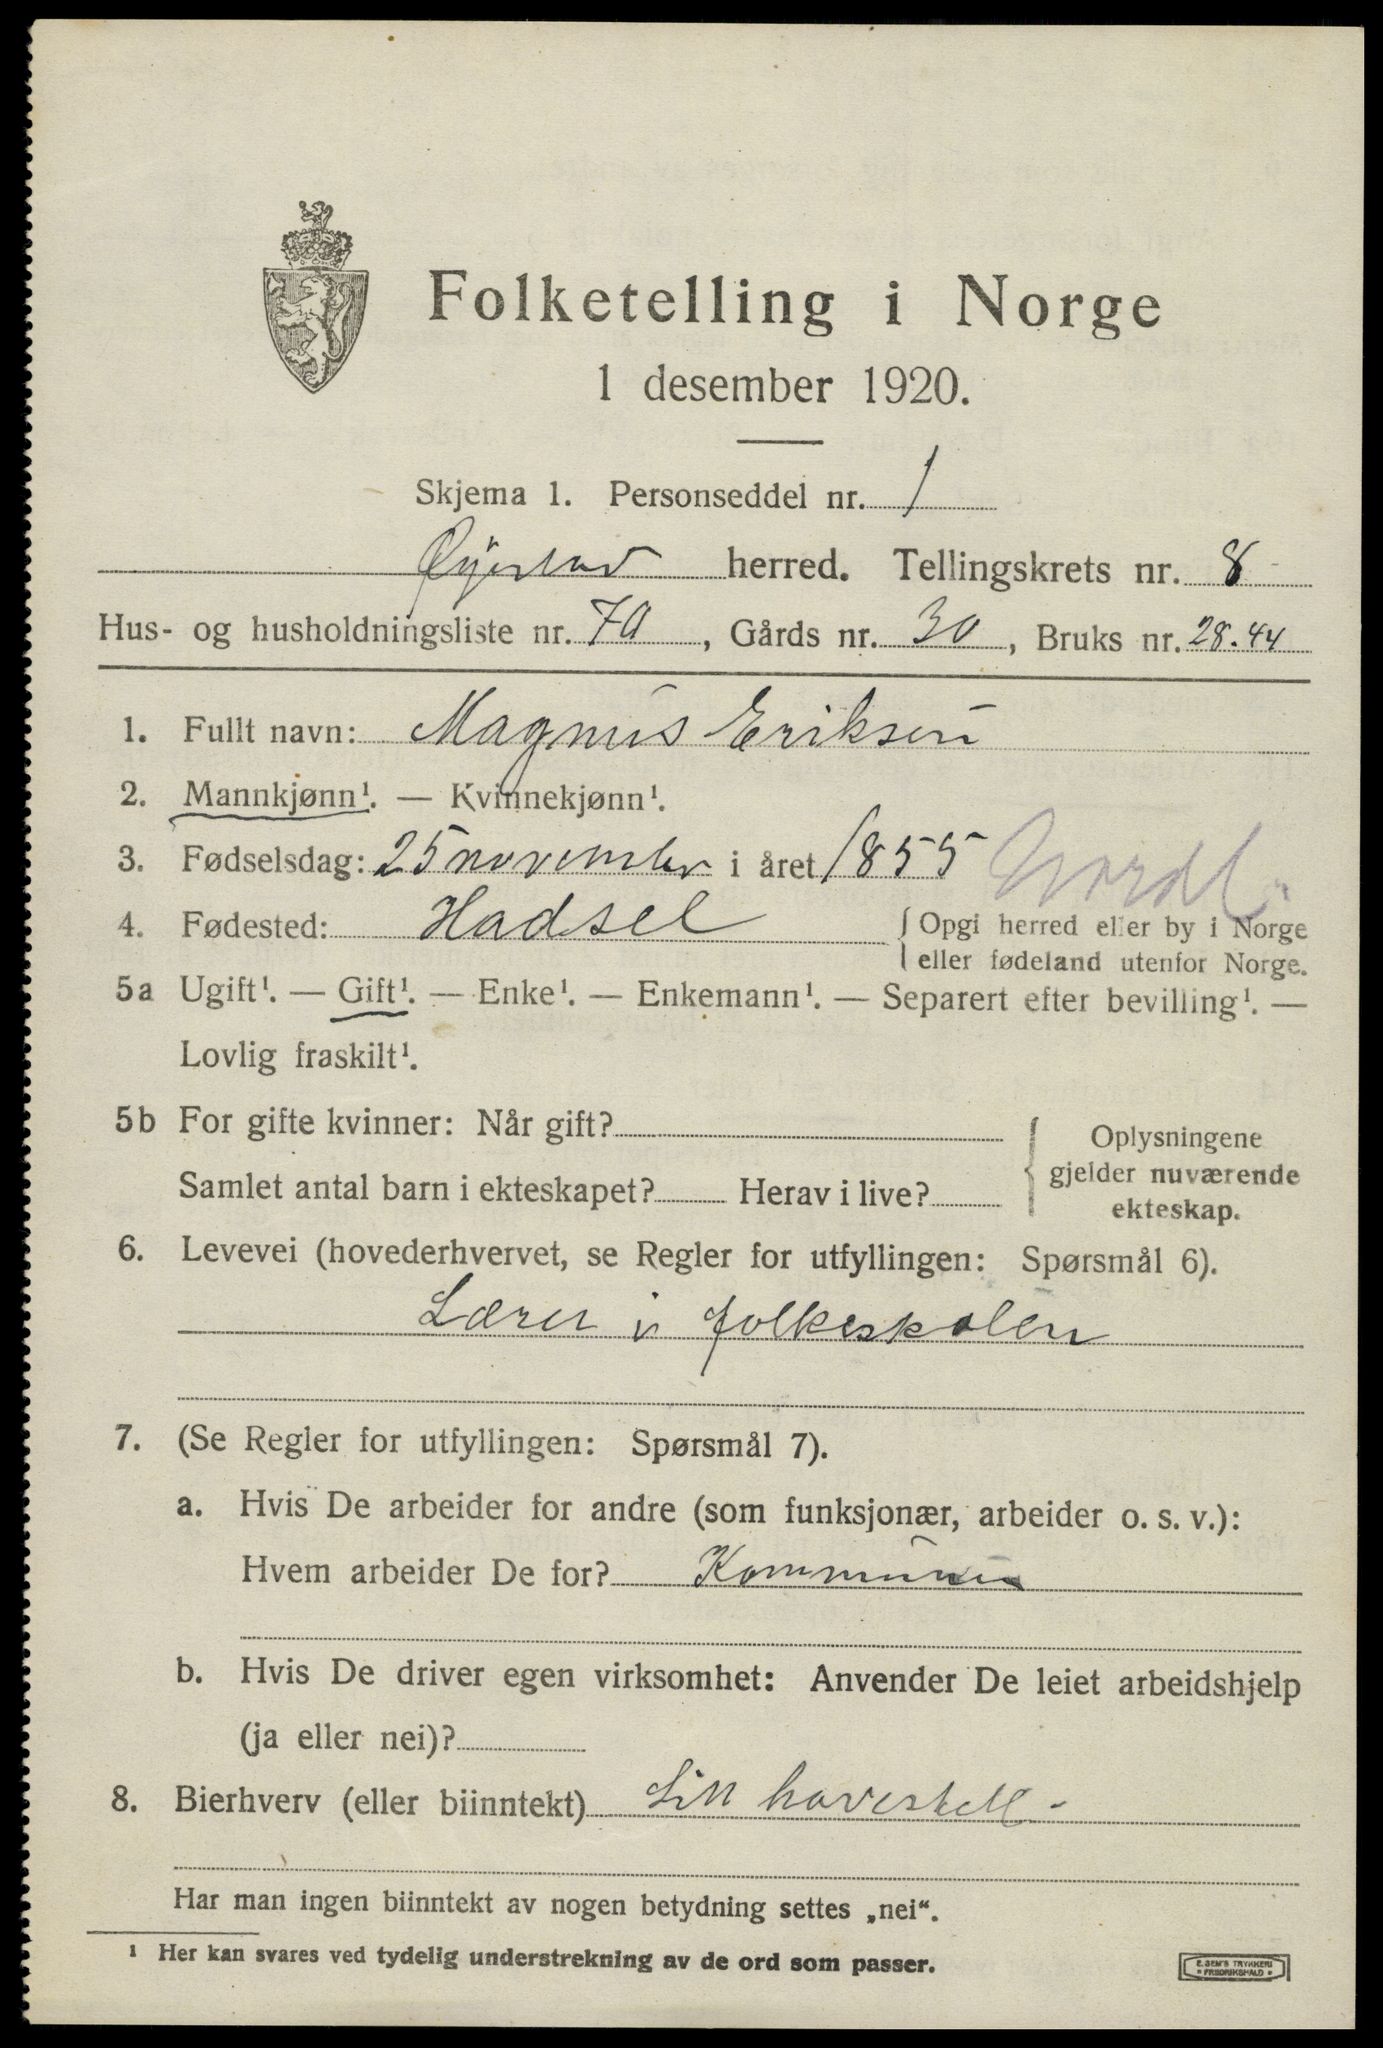 Folketelling i Norge
1 desember 1920.
Skjema 1. Personseddel nr. 1
Øyestad herred. Tellingskrets nr. 8
Hus- og husholdningsliste nr. 70, Gårds nr. 30, Bruks nr. 28.44
1. Fullt navn: Magnus Eriksen
2. Mannkjønn¹. — Kvinnekjønn¹.
3. Fødselsdag: 25 november i året 1855 Nordl.
4. Fødested: Hadsel { Opgi herred eller by i Norge
eller fødeland utenfor Norge.
5a Ugift¹. — Gift¹. — Enke¹. — Enkemann¹. — Separert efter bevilling¹. —
Lovlig fraskilt¹.
5b For gifte kvinner: Når gift?
Samlet antal barn i ekteskapet? Herav i live?
{ Oplysningene
gjelder nuværende
ekteskap.
6. Levevei (hovederhvervet, se Regler for utfyllingen: Spørsmål 6).
Lærer i folkeskolen
7. (Se Regler for utfyllingen: Spørsmål 7).
a. Hvis De arbeider for andre (som funksjonær, arbeider o. s. v.):
Hvem arbeider De for? Kommunen
b. Hvis De driver egen virksomhet: Anvender De leiet arbeidshjelp
(ja eller nei)?
8. Bierhverv (eller biinntekt) Litt havestell -
Har man ingen biinntekt av nogen betydning settes „nei“.
¹ Her kan svares ved tydelig understrekning av de ord som passer.
E. SEM'S TRYKKERI
FREDRIKSHALD